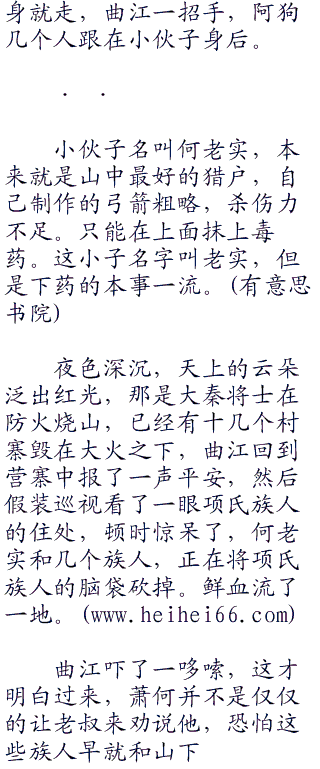 身就走，曲江一招手，阿狗
几个人跟在小伙子身后。
． ．
小伙子名叫何老实，本
来就是山中最好的猎户，自
己制作的弓箭粗略，杀伤力
不足。只能在上面抹上毒
药。这小子名字叫老实，但
是下药的本事一流。(有意思
书院)
夜色深沉，天上的云朵
泛出红光，那是大秦将士在
防火烧山，已经有十几个村
寨毁在大火之下，曲江回到
营寨中报了一声平安，然后
假装巡视看了一眼项氏族人
的住处，顿时惊呆了，何老
实和几个族人，正在将项氏
族人的脑袋砍掉。鲜血流了
一地。(www.heihei66.com)
曲江吓了一哆嗦，这才
明白过来，萧何并不是仅仅
的让老叔来劝说他，恐怕这
些族人早就和山下